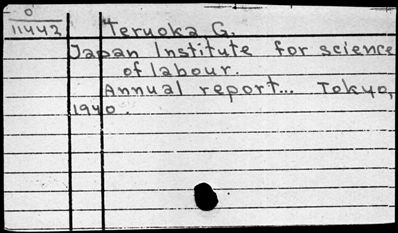 O
11442
Teruoka, G.
Japan Institute for science
of labour.
Annual report... Tokyo,
1940.